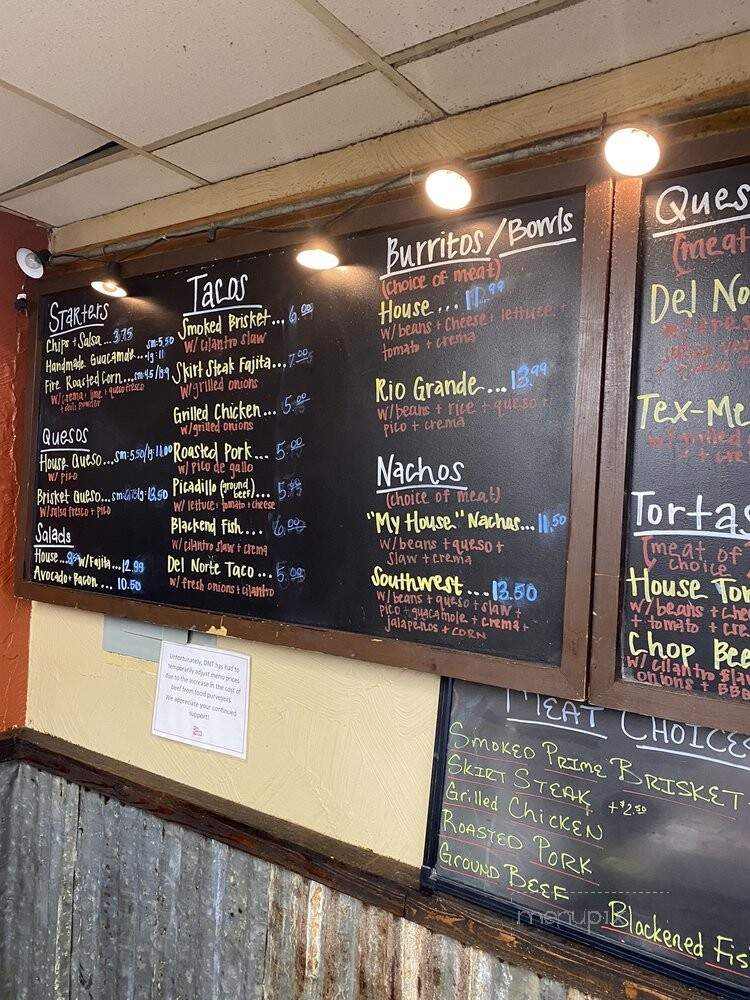 Starters
Chips + Salsa... 3.75
Handmade Guacamole... lg: 11
Fire Roasted Corn...
w/crema + lime + queso fresco
+ chili powder
Quesos
House Queso... sm: 5.50/lg: 11.00
w/ pico
Brisket Queso...
w/salsa fresca + pico
Salads
House... w/Fajita... 12.99
Avocado + Bacon... 10.50
Tacos
Smoked Brisket... 6.00
w/ cilantro slaw
Skirt Steak Fajita... 7.00
w/grilled onions
Grilled Chicken... 5.00
w/grilled onions
Roasted Pork... 5.00
w/ pico de gallo
Picadillo (ground beef)...
w/ lettuce + tomato + cheese
Blackend Fish... 6.00
w/cilantro slaw + crema
Del Norte Taco... 5.00
w/ fresh onions + cilantro
Burritos/Bowls
(choice of meat)
House... 11.99
w/ beans + cheese + lettuce +
tomato + crema
Rio Grande... 13.99
w/beans + rice + queso +
pico + crema
Nachos
(choice of meat)
"My House" Nachos... 11.50
w/ beans + queso +
slaw + crema
Southwest... 13.50
w/beans + queso + slaw +
pico + guacamole + crema +
jalapeños + corn
Ques
(meat
Del No
Tex-Me
Tortas
(meat of
choice
House Tor
w/ beans + che
+ tomato + cre
Chop Bee
w/ cilantro slaw
onions + BB
Unfortunately, DNT has had to
temporarily adjust menu prices
due to the increase in the cost of
beef from food purveyors.
We appreciate your continued
support!
Meat Choices
Smoked Prime Brisket
Skirt Steak +$2.50
Grilled Chicken
Roasted Pork
Ground Beef
Blackened Fis
menupix